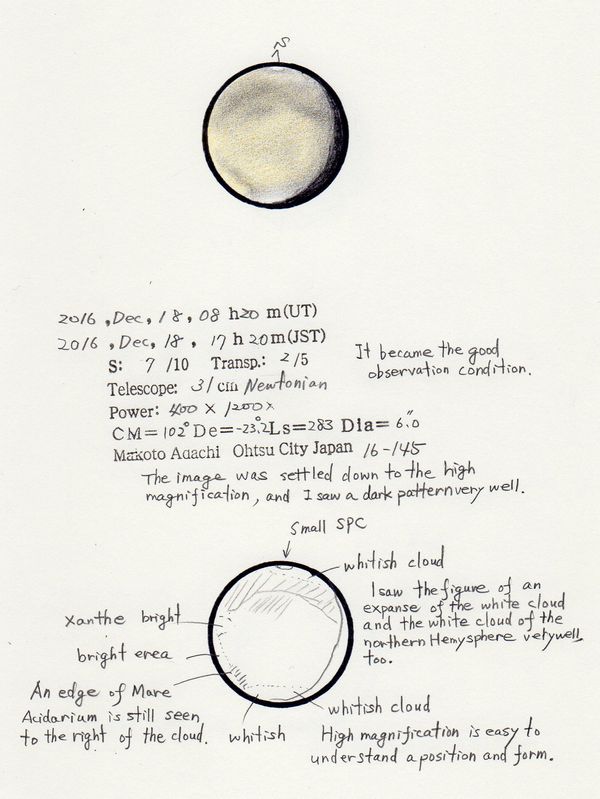 S
2016, Dec, 18, 08 h20 m(UT)
2016, Dec, 18, 17 h 20m(JST)
S: 7 /10 Transp.: 2/5
It became the good
observation condition.
Telescope: 31 cm Newtonian
Power: 400 × 1200×
CM= 102° De=-23.°2 Ls=283 Dia= 6.″0
Makoto Adachi Ohtsu City Japan 16-145
The image was settled down to the high
magnification, and I saw a dark pattern very well.
Small SPC
whitish cloud
I saw the figure of an
expanse of the white cloud
and the white cloud of the
northern Hemysphere very well,
too.
Xanthe bright
bright erea
An edge of Mare
Acidarium is still seen
to the right of the cloud.
whitish
whitish cloud
High magnification is easy to
understand a position and form.